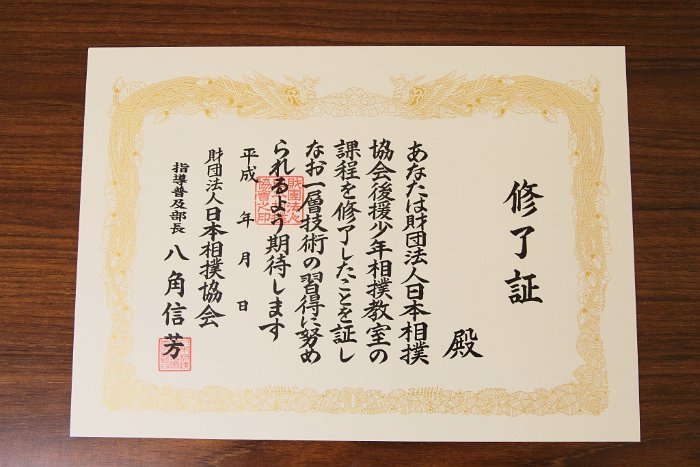 修了証
殿
あなたは財団法人日本相撲
協会後援少年相撲教室の
課程を修了したことを証し
なお一層技術の習得に努め
られるよう期待します
平成 年 月 日
財団法人日本相撲協会
指導普及部長 八角信芳